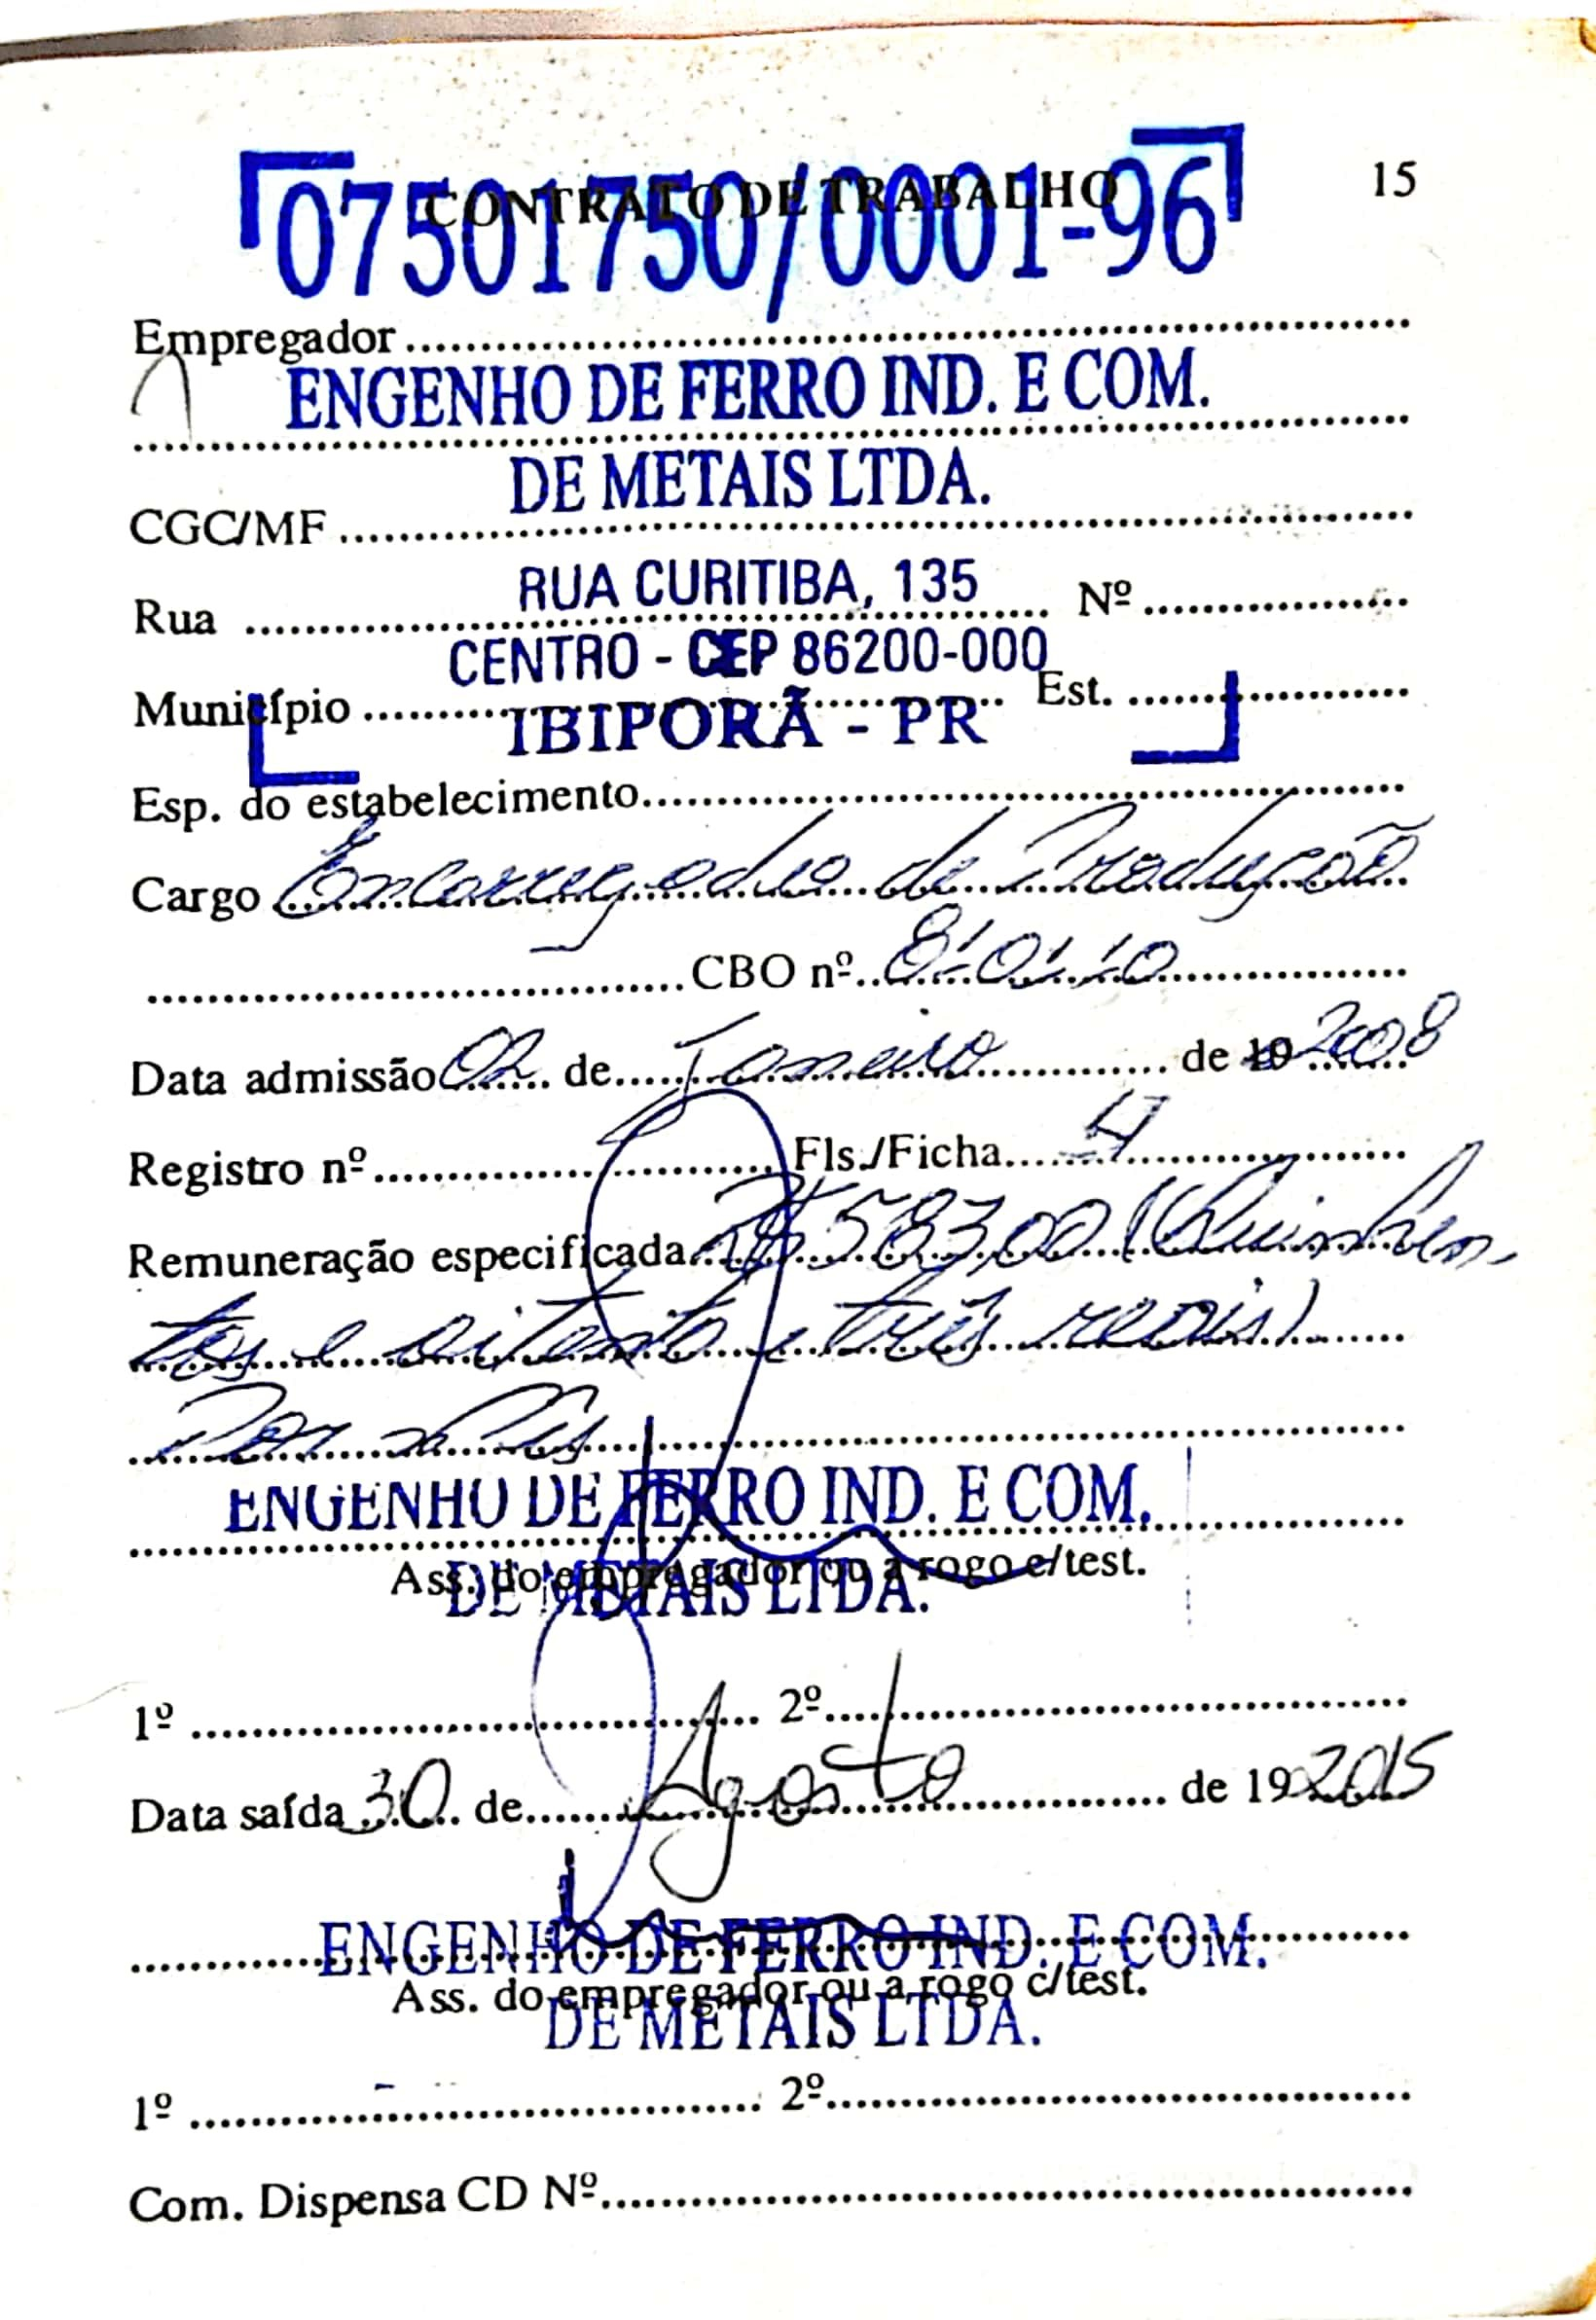 15
CONTRATO DE TRABALHO
07501750/0001-96
Empregador
ENGENHO DE FERRO IND. E COM.
DE METAIS LTDA.
CGC/MF
Rua RUA CURITIBA, 135 Nº
CENTRO - CEP 86200-000
Município IBIPORÃ - PR Est.
Esp. do estabelecimento
Cargo Encarregado de Produção
CBO nº 8-01.10
Data admissão 02 de Janeiro de 19 2008
Registro nº Fls./Ficha 4
Remuneração especificada R$ 583,00 (Quinhen-
tos e oitenta e três reais)
Por mês
ENGENHO DE FERRO IND. E COM.
Ass. do empregador ou a rogo c/test.
DE METAIS LTDA.
1º 2º
Data saída 30 de Agosto de 19 2015
ENGENHO DE FERRO IND. E COM.
Ass. do empregador ou a rogo c/test.
DE METAIS LTDA.
1º 2º
Com. Dispensa CD Nº